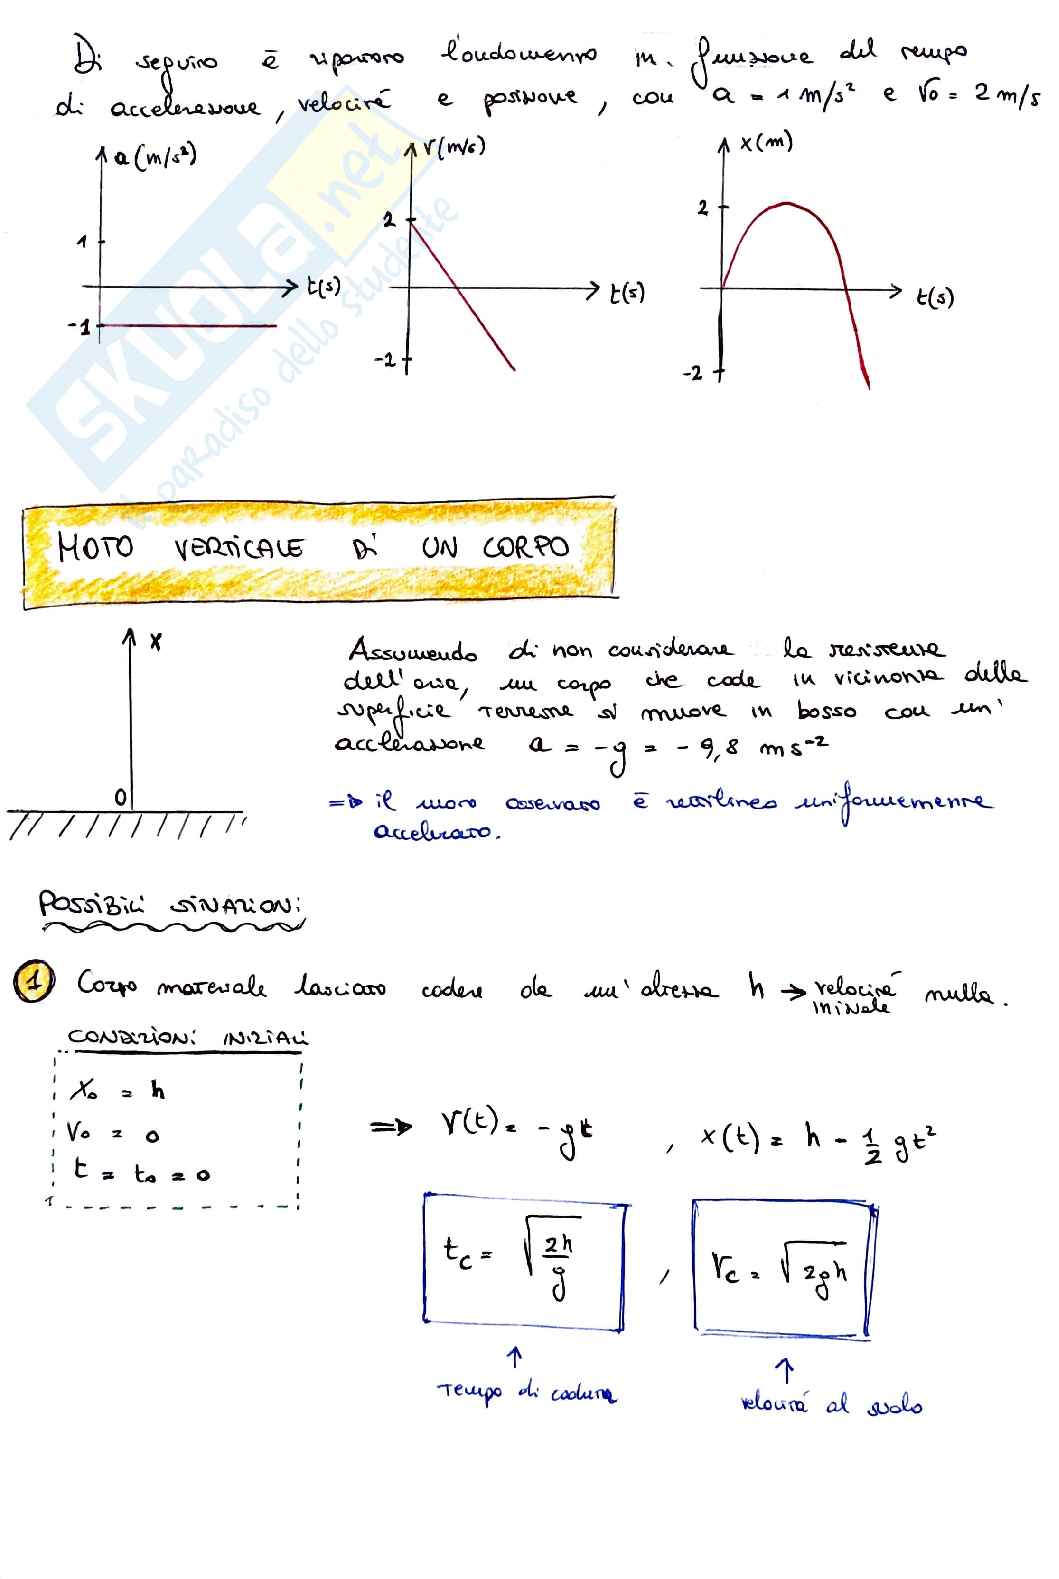 Di seguito è riportato l'andamento in funzione del tempo
di accelerazione, velocità e posizione, con a = 1 m/s² e v₀ = 2 m/s
a (m/s²)
1
-1
t(s)
v(m/s)
2
-2
t(s)
x(m)
2
-2
t(s)
SKUOLA.net
il paradiso dello studente
MOTO VERTICALE DI UN CORPO
x
0
Assumendo di non considerare la resistenza
dell'aria, un corpo che cade in vicinanza della
superficie terrestre si muove in basso con un'
accelerazione a = -g = - 9,8 ms⁻²
⇒ il moto osservato è rettilineo uniformemente
accelerato.
POSSIBILI SITUAZIONI:
1 Corpo materiale lasciato cadere da un'altezza h → velocità iniziale nulla.
CONDIZIONI INIZIALI
x₀ = h
v₀ = 0
t = t₀ = 0
⇒ v(t) = - gt , x(t) = h - 1/2 gt²
t_c = √(2h/g) , v_c = √(2gh)
↑ ↑
tempo di caduta velocità al suolo